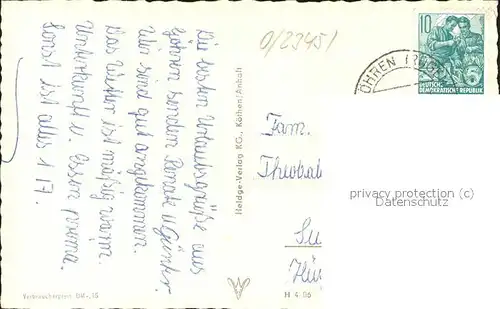 Die besten Urlaubsgrüße aus
Göhren senden Renate u. Günter.
Wir sind gut angekommen.
Das Wetter ist mäßig warm.
Unterkunft u. Essen prima.
Sonst ist alles 1 17.
Verbraucherpreis DM -,15
Heldge-Verlag KG., Köthen/Anhalt
H 4 06
0/23451
Fam.
Theobal
Su
10
DEUTSCHE
DEMOKRATISCHE REPUBLIK
ÖHREN (RÜGEN)
privacy protection (c)
Datenschutz